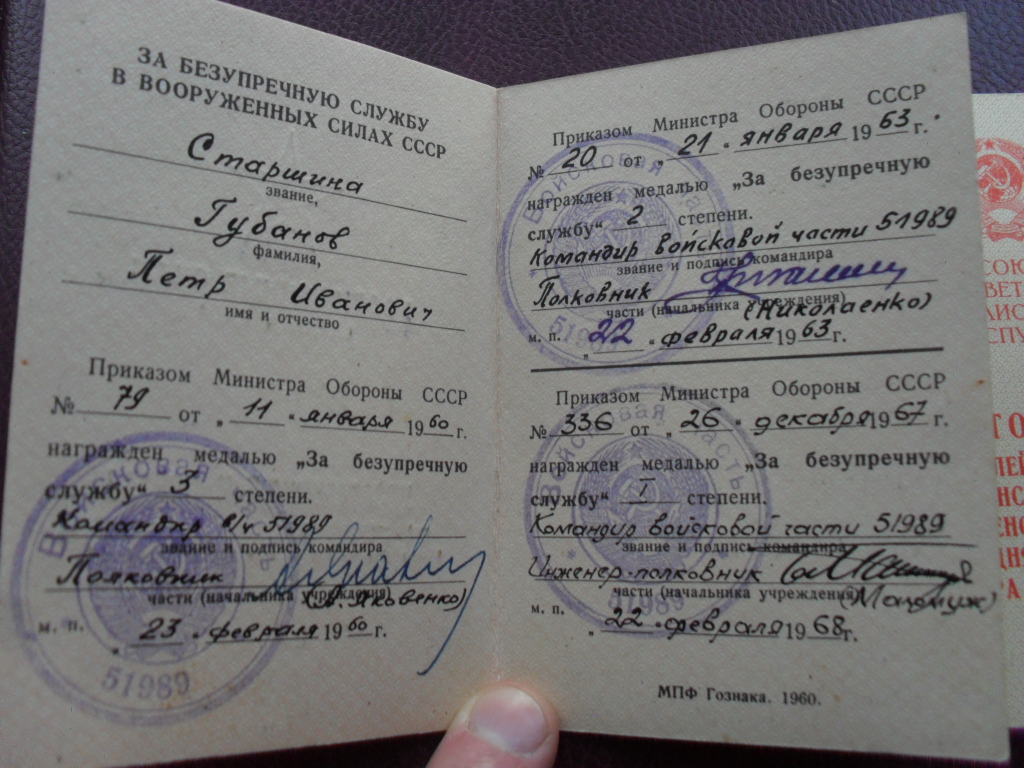 ЗА БЕЗУПРЕЧНУЮ СЛУЖБУ
В ВООРУЖЕННЫХ СИЛАХ СССР
Старшина
звание,
Губанов
фамилия,
Петр Иванович
имя и отчество
Приказом Министра Обороны СССР
№ 79 от „ 11 " января 1960 г.
награжден медалью „За безупречную
службу" 3 степени.
Командир в/ч 51989
звание и подпись командира
Полковник
части (начальника учреждения)
(А. Яковенко)
м. п. „ 23 " февраля 1960 г.
Войсковая часть
51989
Приказом Министра Обороны СССР
№ 20 от „ 21 " января 1963 г.
награжден медалью „За безупречную
службу" 2 степени.
Командир войсковой части 51989
звание и подпись командира
Полковник
части (начальника учреждения)
(Николаенко)
м. п. „ 22 " февраля 1963 г.
Войсковая часть
51989
Приказом Министра Обороны СССР
№ 336 от „ 26 " декабря 1967 г.
награжден медалью „За безупречную
службу" I степени.
Командир войсковой части 51989
звание и подпись командира
Инженер-полковник
части (начальника учреждения)
м. п. „ 22 " февраля 1968 г.
Войсковая часть
51989
МПФ Гознака. 1960.